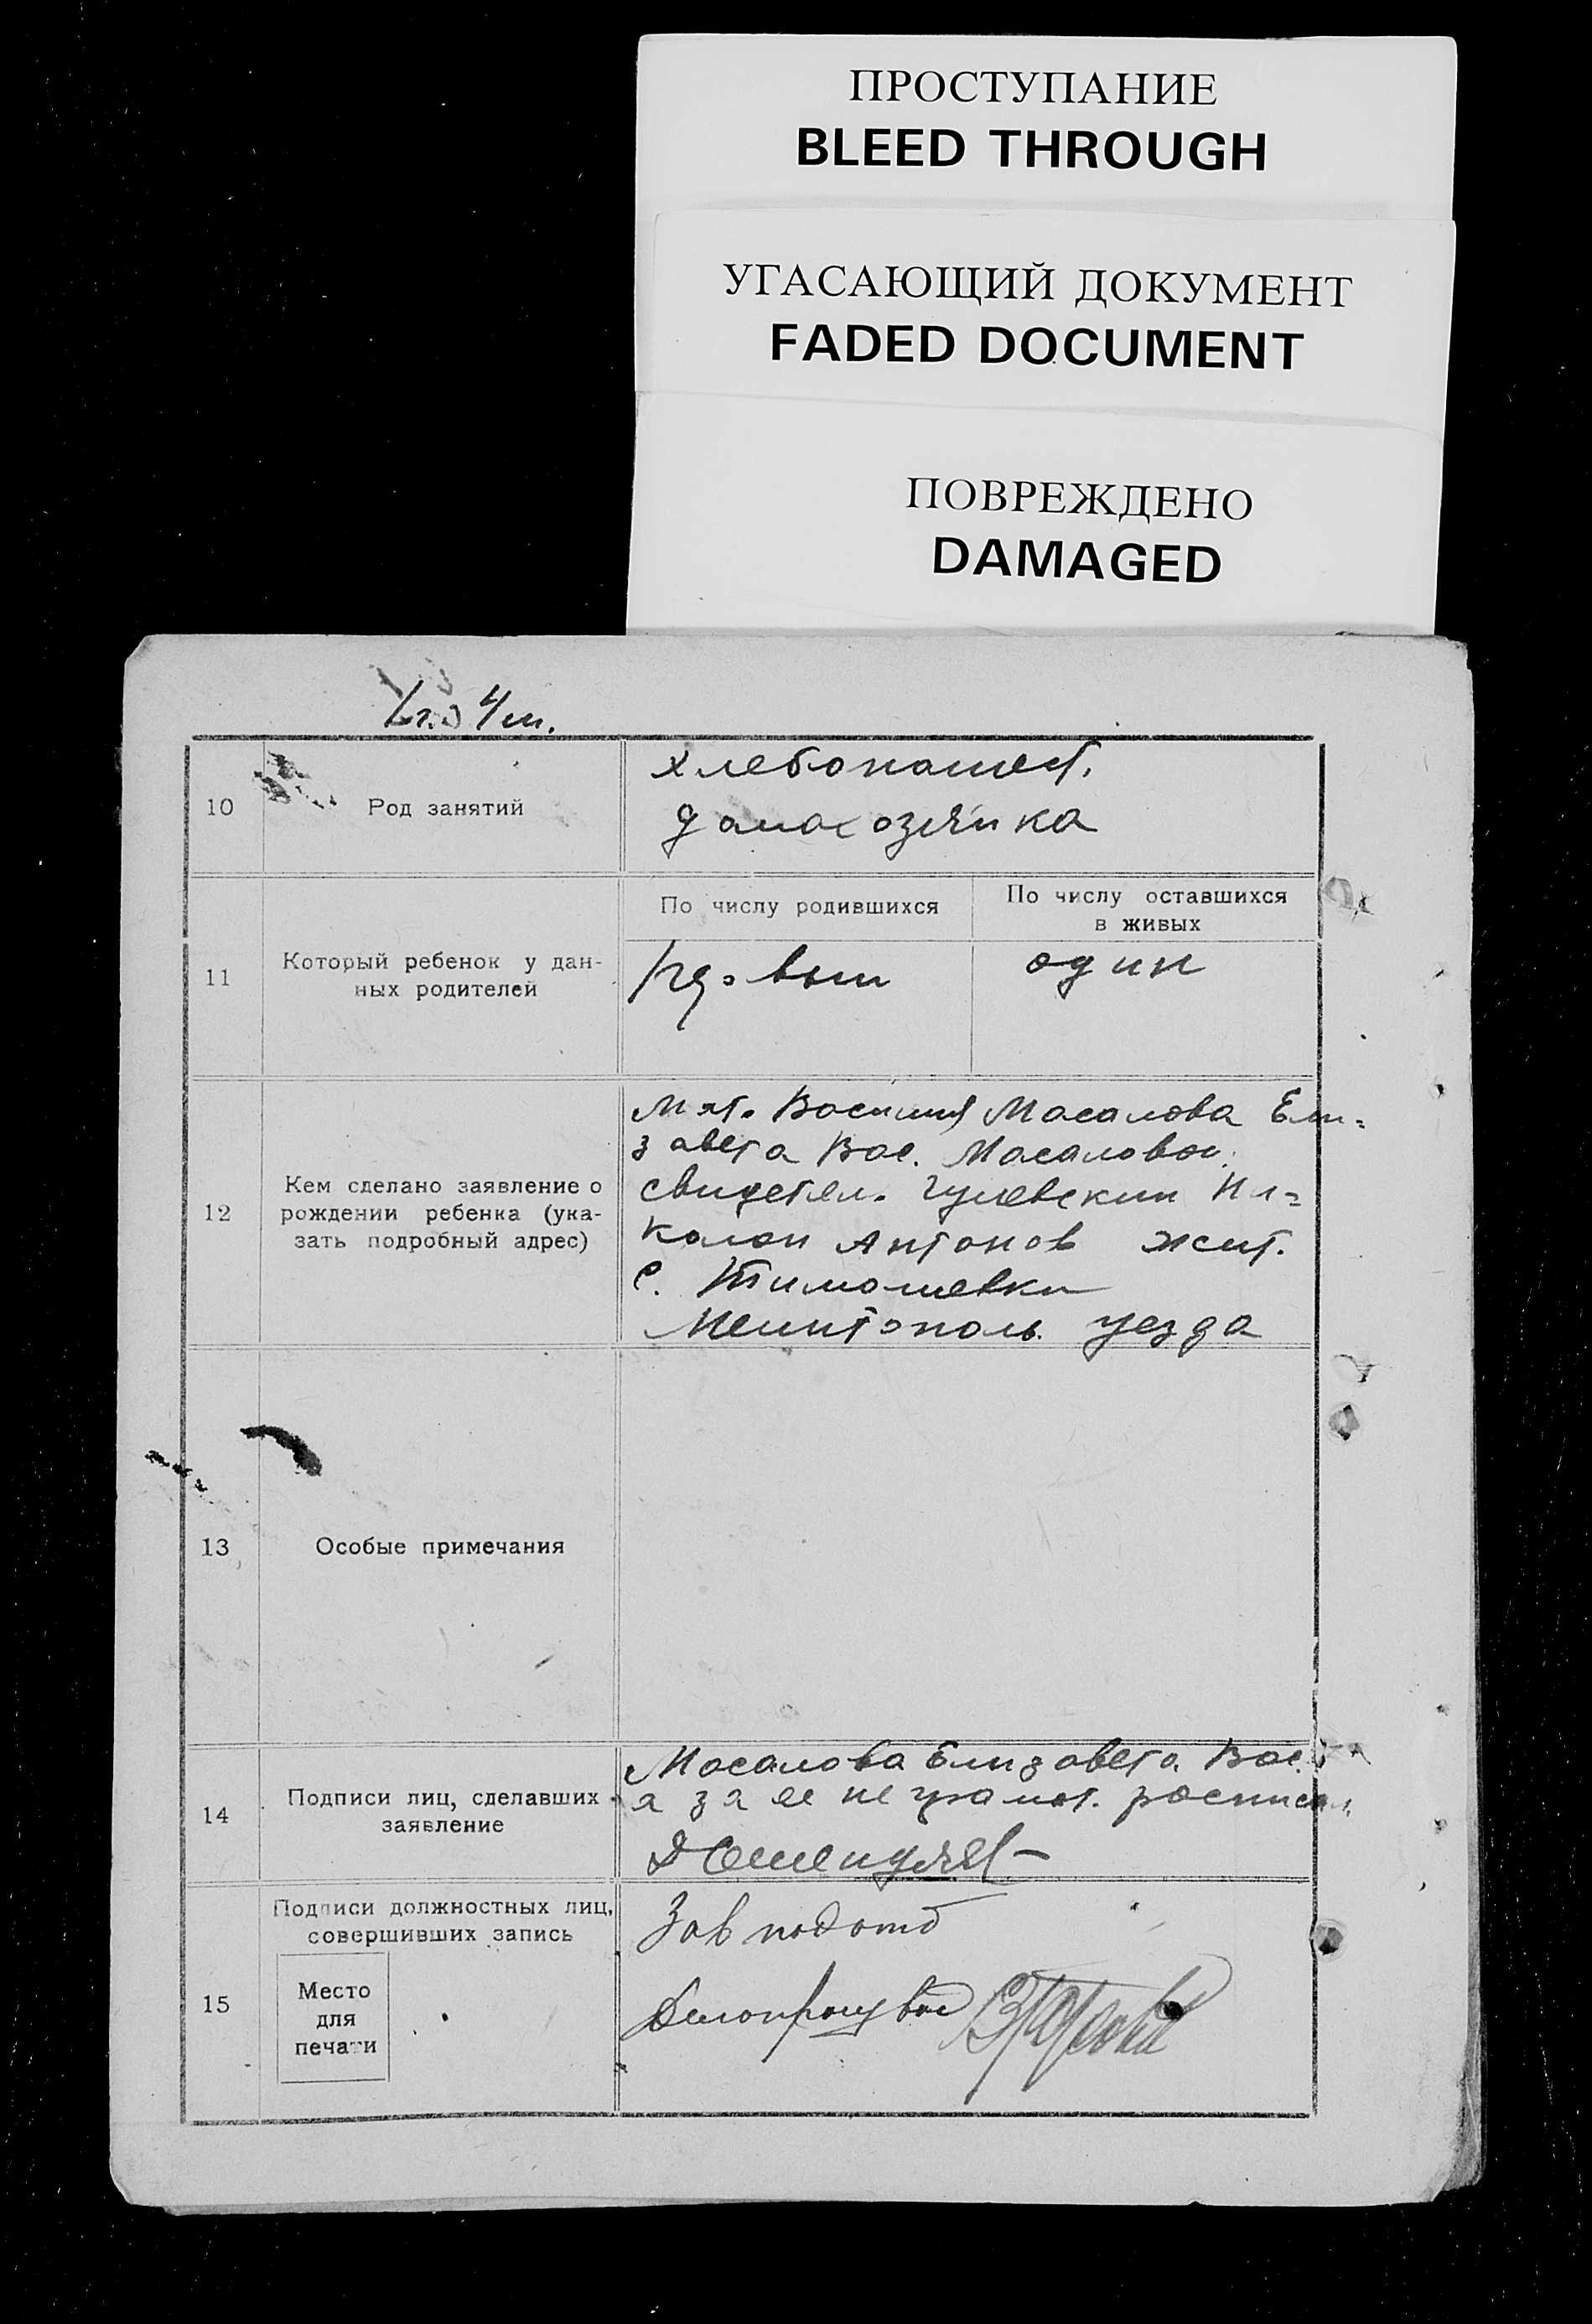 ПРОСТУПАНИЕ
BLEED THROUGH
УГАСАЮЩИЙ ДОКУМЕНТ
FADED DOCUMENT
ПОВРЕЖДЕНО
DAMAGED
10
Род занятий
хлебопашест.
домохозяйка
11
Который ребенок у дан-
ных родителей
По числу родившихся
По числу оставшихся
в живых
один
12
Кем сделано заявление о
рождении ребенка (ука-
зать подробный адрес)
Мат. Василия Масалова Ели=
завета Вас. Масаловои.
свидетел. Ни=
колаи Антонов жит.
с. Тимошевки
Мелитополь. уезда
13
Особые примечания
14
Подписи лиц, сделавших
заявление
Масалова Елизавета Вас.
а за ее неграмот. росписал
15
Подписи должностных лиц,
совершивших запись
Место
для
печати
Зав подотд
Делопроизвод